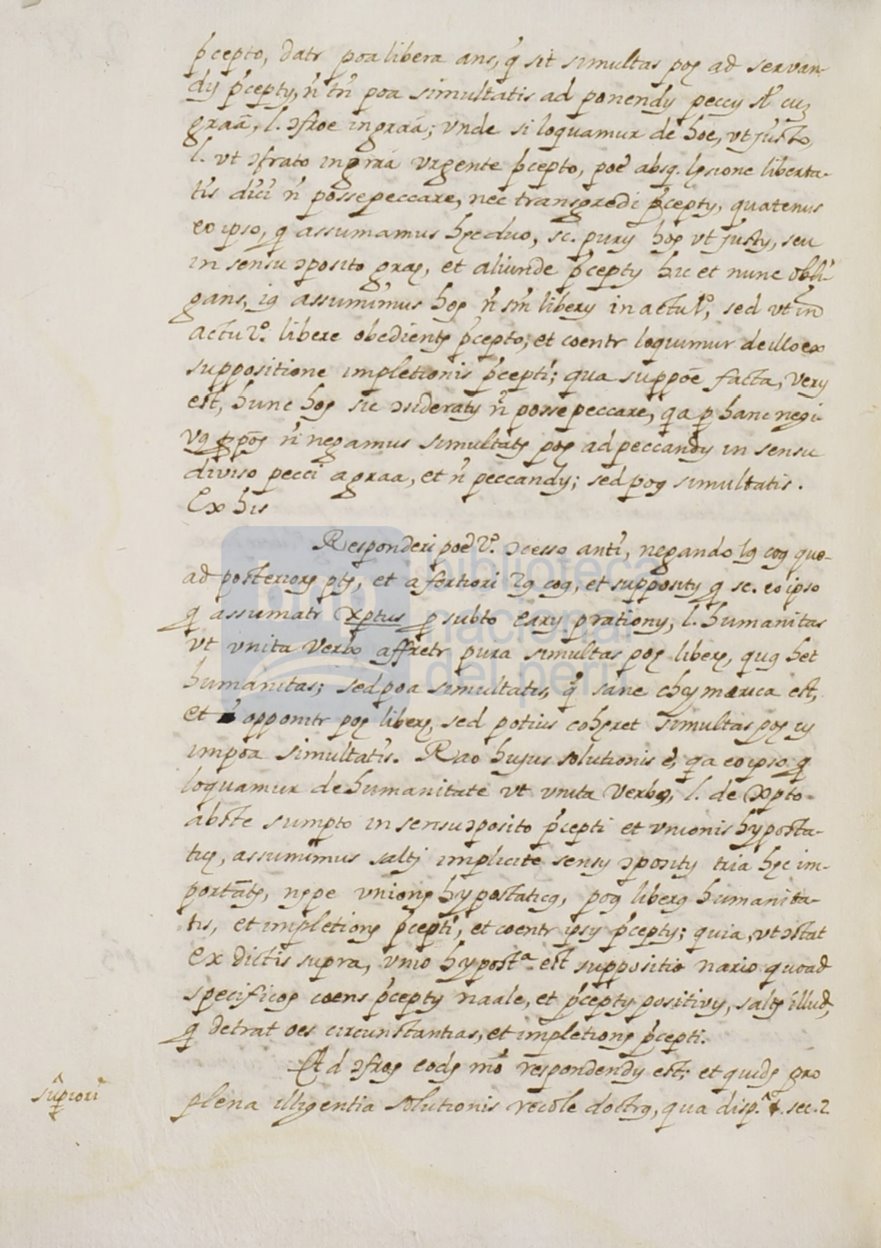 p̃cepto, datr poa libera ans, q̃ sit simultas poę ad servan-
dy p̃cepty, ñ tñ poa simultatis ad ponendy peccy sl̃ cuȝ
graã, l. ɔfroe in graã; vnde si loquamur de hoe, vt justo,
l. vt ɔfrato in graã vrgente p̃cepto, poẽ absq. lęsione liberta-
tis dici ñ posse peccare, nec transgredi p̃cepty, quatenus
eo ipso, q̃ assumamus hęc duo, sc. pury hoę vt justy, seu
in sensu ɔposito graę, et aliunde p̃cepty hic et nunc obli-
gans, ią assumimus hoę ñ sm̃ libery in actu 1º, sed vt in
actu 2º libere obedientę p̃cepto; et coentr loquimur de illo ex
suppositione impletionis p̃cepti; qua suppõe facta, very
est, hunc hoę sic ɔsideraty ñ posse peccare, q̃a p hanc negi-
vą ppõę ñ negamus simultatę poę ad peccandy in sensu
diviso pecci a graa, et ñ peccandy; sed poę simultatis.
Ex his
Responderi poẽ 2º ɔcesso anti, negando 1ą coą quo-
ad posteriorę ptę, et a fortiori 2ą coą, et supposity q̃ sc. eo ipso
q̃ assumatr Xptus p subto ... prationy, l. humanitas
vt vnita Verbo affretr pura simultas poę liberę, quą het
humanitas; sed poa simultatis, q̃ sane chymærica est,
et ñ opponitr poę liberę, sed potius cohęret simultas poę cȝ
impoa simultatis. Rao hujus solutionis ẽ, q̃a eo ipso q̃
loquamur de humanitate vt vnita Verbo, l. de Xpto
abste sumpto in sensu ɔposito p̃cepti et vnionis hyposta-
ticę, assumimus saltę implicite sensy ɔposity tria hęc im-
portãtę, nępe vnionę hypostaticą, poę liberą humanita-
tis, et impletionę p̃cepti, et coentr ipsy p̃cepty; quia, vt ɔstat
ex dictis supra, vnio hypostª est suppositio nario quoad
specificoę coens p̃cepty naale, et p̃cepty positivy, saltę illud,
q̃ detrat oẽs circunstantias, et impletionę p̃cepti.
Ad ɔfroę eodę mõ respondendy est; et quidę pro
sup̃riori
plena illigentia solutionis recole doctrą, qua disp.ª ... sec. 2